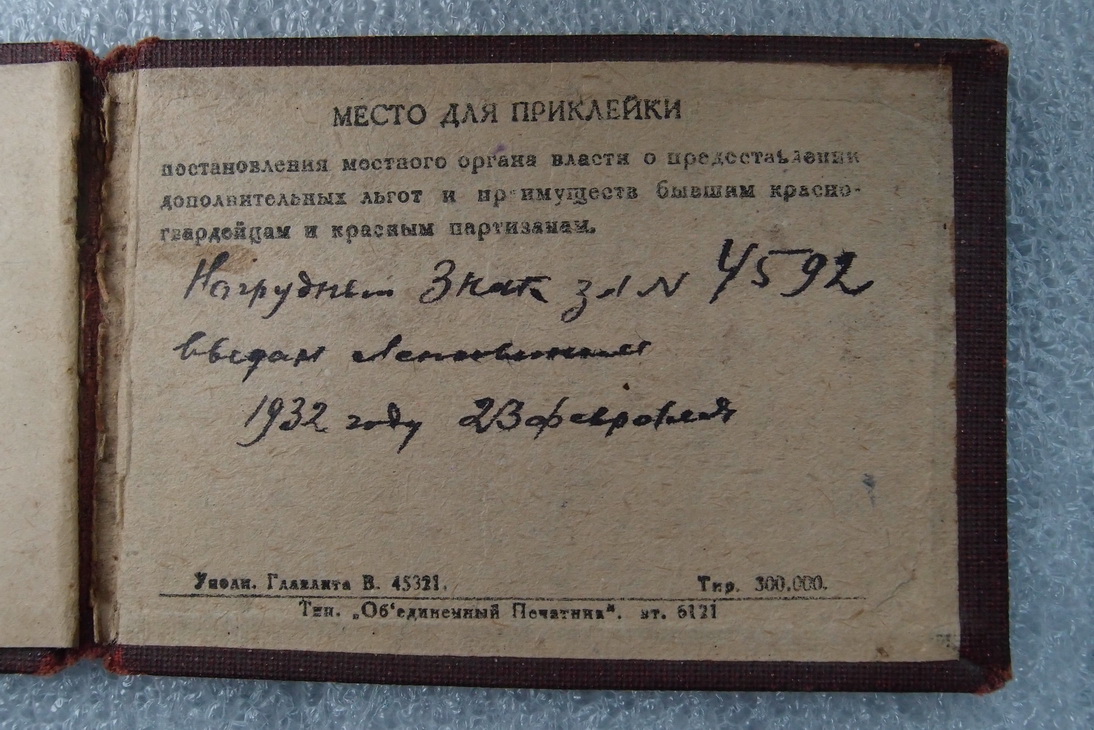 МЕСТО ДЛЯ ПРИКЛЕЙКИ
постановления местного органа власти о предоставлении
дополнительных льгот и преимуществ бывшим красно-
гвардейцам и красным партизанам.
Нагрудный Знак за N 4592
выдан
1932 году 23 февраля
Уполн. Главлита В. 45321. Тир. 300.000.
Тип. „Об'единенный Печатник". зт. 6121